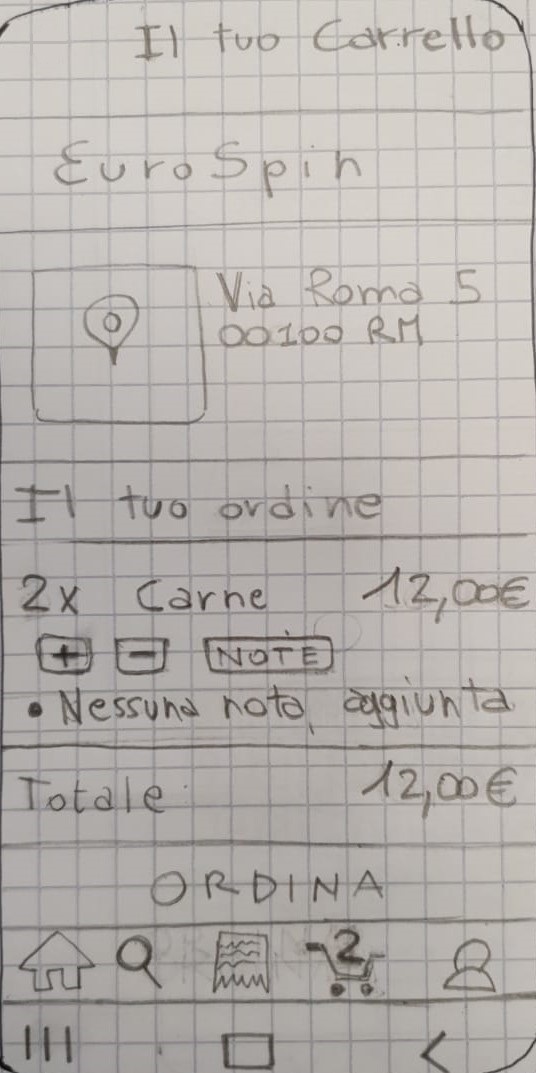 Il tuo Carrello
EuroSpin
Via Roma 5
00100 RM
Il tuo ordine
2x Carne 12,00€
+ - NOTE
• Nessuna nota aggiunta
Totale 12,00€
ORDINA
2